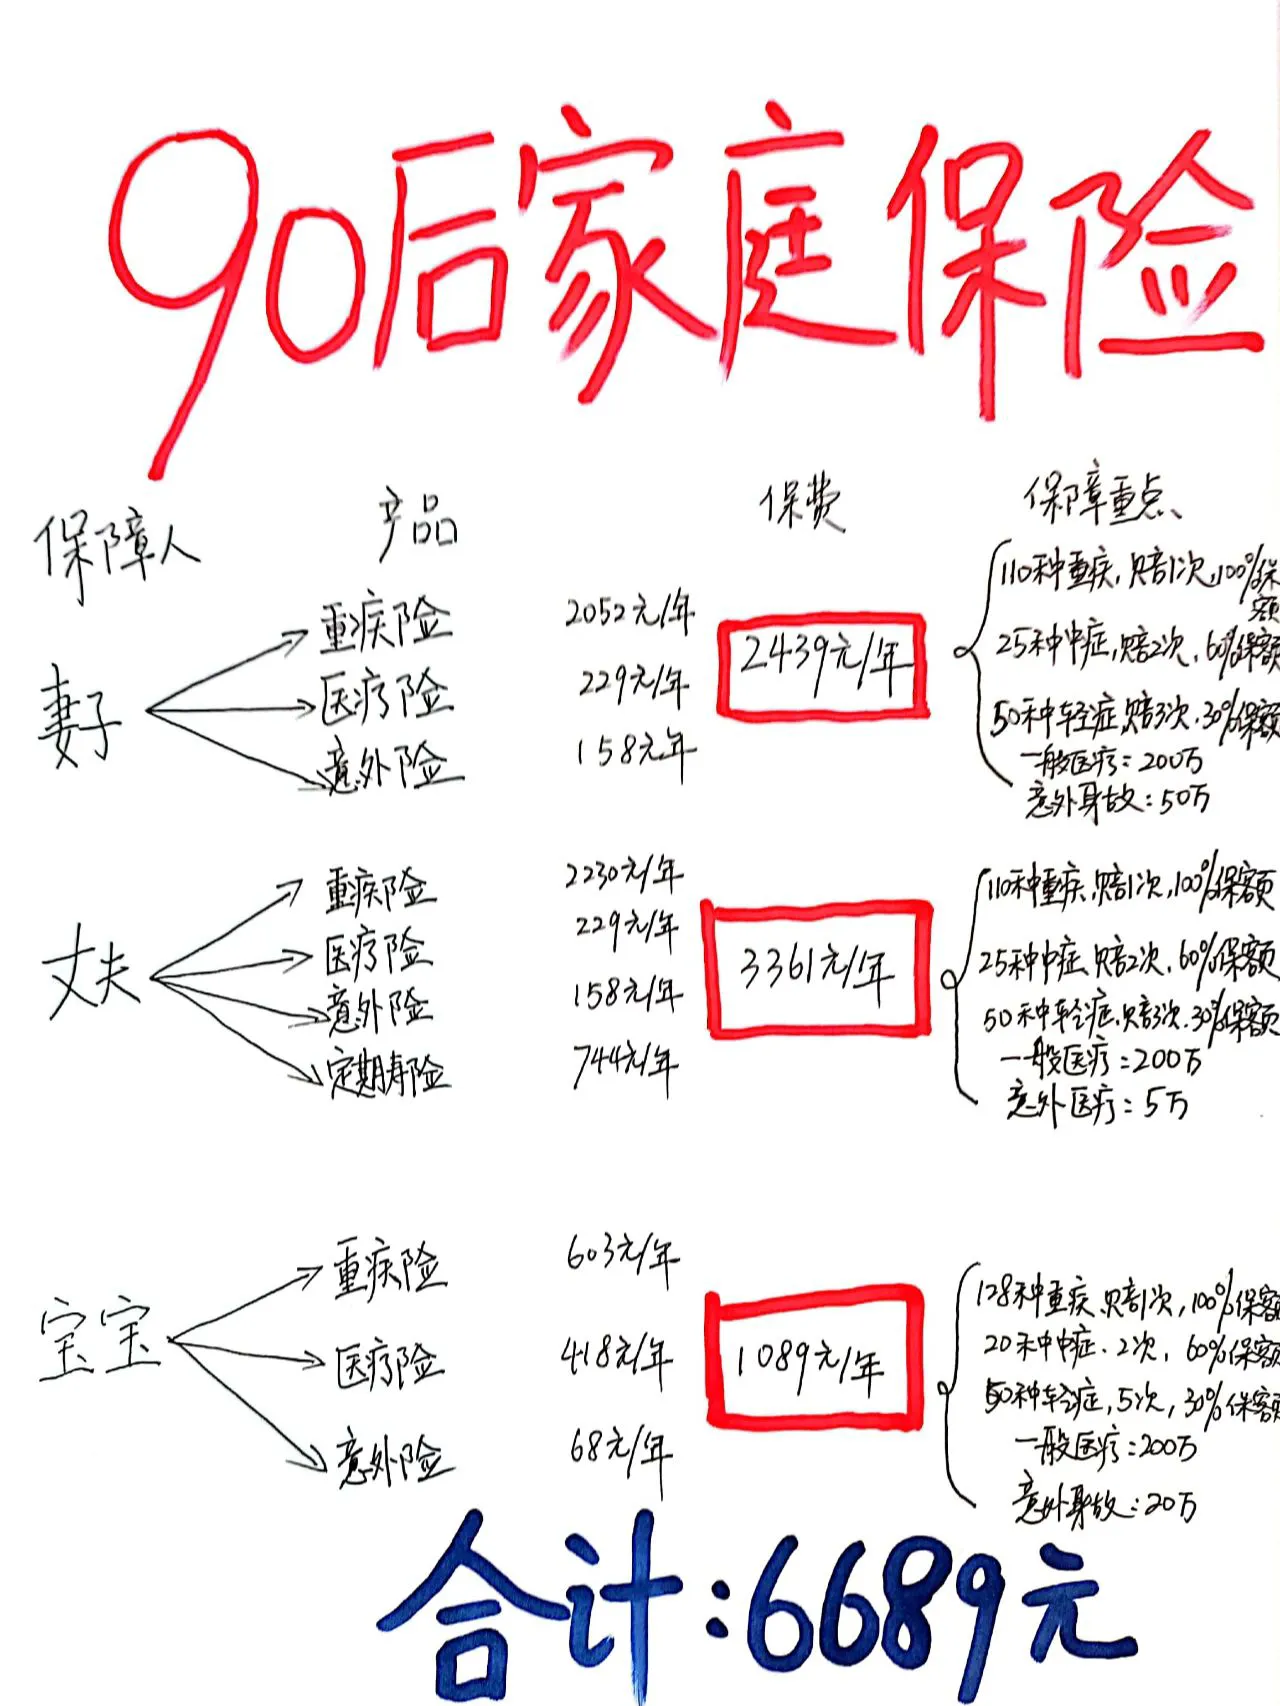 90后家庭保险
保障人 产品 保费 保障重点
妻子
重疾险 2052元/年
医疗险 229元/年
意外险 158元年
2439元/年
110种重疾,赔1次,100%保额
25种中症,赔2次,60%保额
50种轻症,赔3次,30%保额
一般医疗:200万
意外身故:50万
丈夫
重疾险 2230元/年
医疗险 229元/年
意外险 158元/年
定期寿险 744元/年
3361元/年
110种重疾,赔1次,100%保额
25种中症,赔2次,60%保额
50种轻症,赔3次,30%保额
一般医疗:200万
意外医疗:5万
宝宝
重疾险 603元/年
医疗险 418元/年
意外险 68元/年
1089元/年
128种重疾,赔1次,100%保额
20种中症.2次,60%保额
50种轻症,5次,30%保额
一般医疗:200万
意外身故:20万
合计:6689元